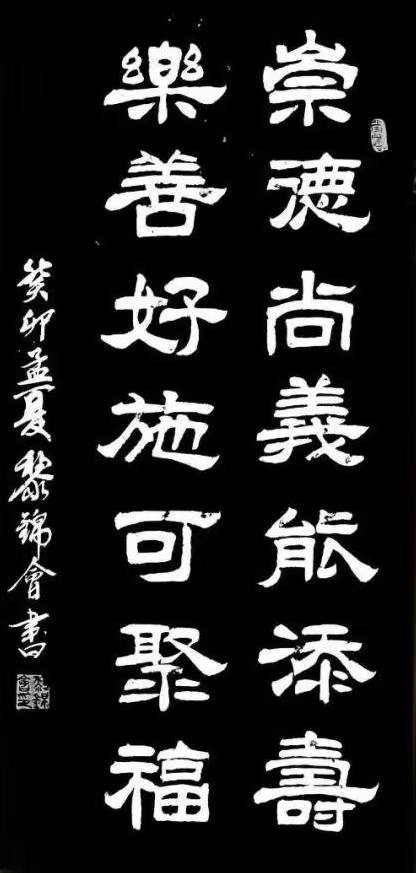 崇德尚義能添壽
樂善好施可聚福
癸卯孟夏黎錦會書